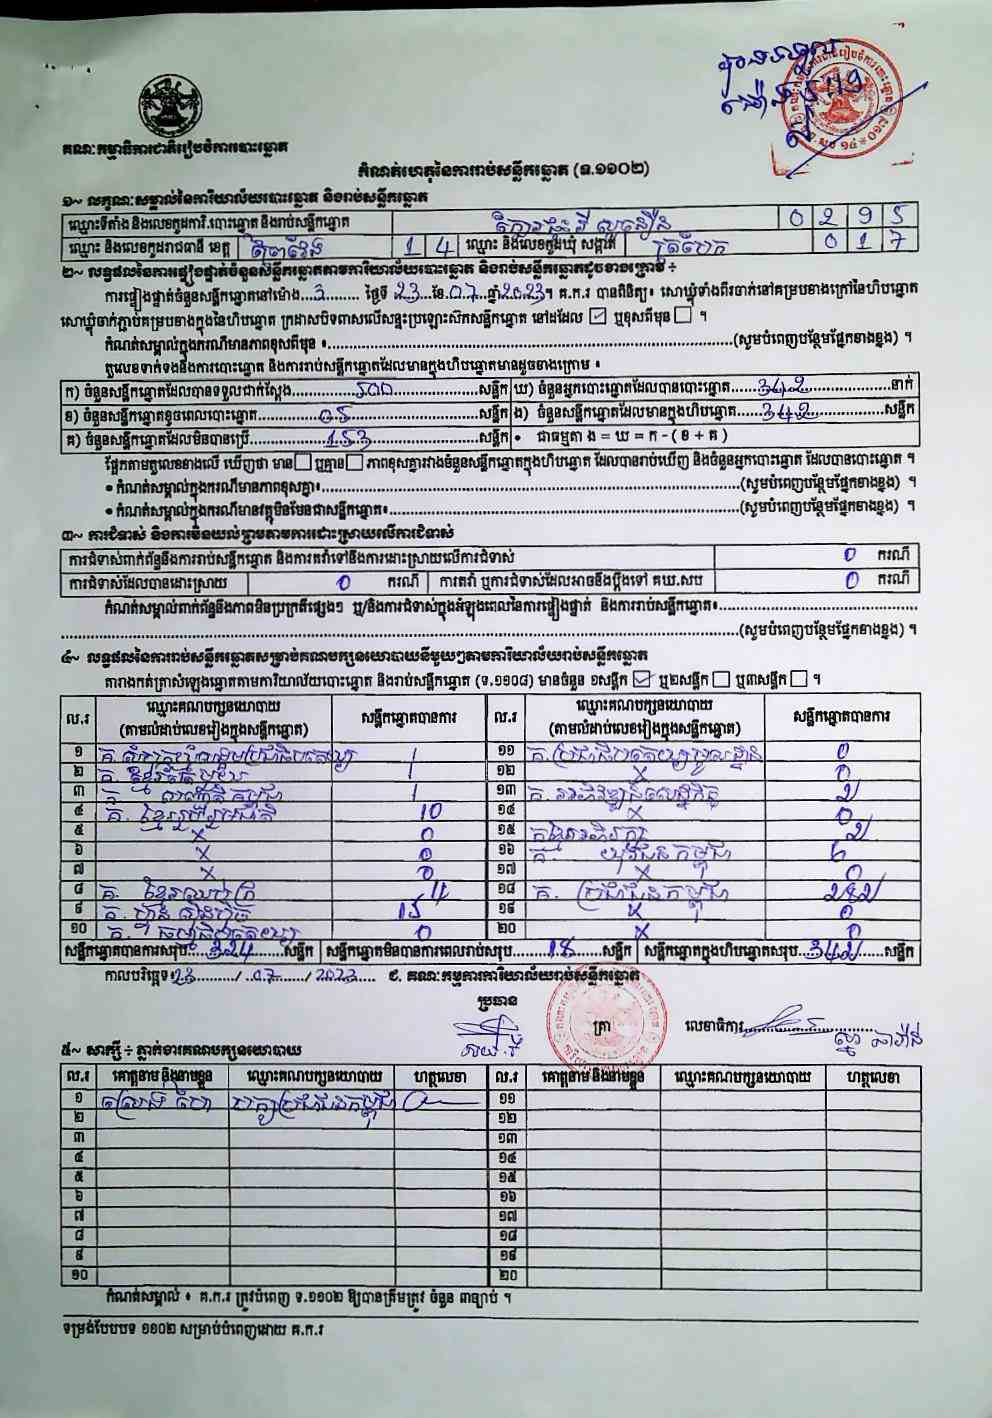 គណៈកម្មាធិការជាតិរៀបចំការបោះឆ្នោត
កំណត់ហេតុនៃការរាប់សន្លឹកឆ្នោត (ទ.១១០២)
១~ លក្ខណៈសម្គាល់នៃការិយាល័យបោះឆ្នោត និងរាប់សន្លឹកឆ្នោត
ឈ្មោះទីតាំង និងលេខកូដការិ.បោះឆ្នោត និងរាប់សន្លឹកឆ្នោត 0 2 9 5
ឈ្មោះ និងលេខកូដរាជធានី ខេត្ត ព្រៃវែង 1 4 ឈ្មោះ និងលេខកូដឃុំ សង្កាត់ 0 1 7
២~ លទ្ធផលនៃការផ្ទៀងផ្ទាត់ចំនួនសន្លឹកឆ្នោតតាមការិយាល័យបោះឆ្នោត និងរាប់សន្លឹកឆ្នោតដូចខាងក្រោម ÷
ការផ្ទៀងផ្ទាត់ចំនួនសន្លឹកឆ្នោតនៅម៉ោង...3......... ថ្ងៃទី 23...ខែ.07...ឆ្នាំ2023។ គ.ក.រ បានពិនិត្យ៖ សោឃ្លុំទាំងពីរចាក់នៅគម្របខាងក្រៅនៃហិបឆ្នោត
សោឃ្លុំចាក់ភ្ជាប់គម្របខាងក្នុងនៃហិបឆ្នោត ក្រដាសបិទពាសលើសន្ទះប្រឡោះស៊កសន្លឹកឆ្នោត នៅដដែល ☑ ឬខុសពីមុន ☐ ។
កំណត់សម្គាល់ក្នុងករណីមានភាពខុសពីមុន ៖..........(សូមបំពេញបន្ថែមផ្នែកខាងខ្នង) ។
តួលេខទាក់ទងនឹងការបោះឆ្នោត និងការរាប់សន្លឹកឆ្នោតដែលមានក្នុងហិបឆ្នោតមានដូចខាងក្រោម ៖
ក) ចំនួនសន្លឹកឆ្នោតដែលបានទទួលជាក់ស្តែង..........500..........សន្លឹក ឃ) ចំនួនអ្នកបោះឆ្នោតដែលបានបោះឆ្នោត.....342..........នាក់
ខ) ចំនួនសន្លឹកឆ្នោតខូចពេលបោះឆ្នោត..........05..........សន្លឹក ង) ចំនួនសន្លឹកឆ្នោតដែលមានក្នុងហិបឆ្នោត.....342..........សន្លឹក
គ) ចំនួនសន្លឹកឆ្នោតដែលមិនបានប្រើ..........153..........សន្លឹក • ជាធម្មតា ង = ឃ = ក - ( ខ + គ )
ផ្អែកតាមតួលេខខាងលើ ឃើញថា មាន ☐ ឬគ្មាន ☐ ភាពខុសគ្នារវាងចំនួនសន្លឹកឆ្នោតក្នុងហិបឆ្នោត ដែលបានរាប់ឃើញ និងចំនួនអ្នកបោះឆ្នោត ដែលបានបោះឆ្នោត ។
• កំណត់សម្គាល់ក្នុងករណីមានភាពខុសគ្នា៖..........(សូមបំពេញបន្ថែមផ្នែកខាងខ្នង) ។
• កំណត់សម្គាល់ក្នុងករណីមានវត្ថុមិនមែនជាសន្លឹកឆ្នោត៖..........(សូមបំពេញបន្ថែមផ្នែកខាងខ្នង) ។
៣~ ការជំទាស់ និងការមិនយល់ព្រមតាមការដោះស្រាយលើការជំទាស់
ការជំទាស់ពាក់ព័ន្ធនឹងការរាប់សន្លឹកឆ្នោត និងការតវ៉ាទៅនឹងការដោះស្រាយលើការជំទាស់ 0 ករណី
ការជំទាស់ដែលបានដោះស្រាយ 0 ករណី ការតវ៉ា ឬការជំទាស់ដែលអាចនឹងប្តឹងទៅ គឃ.សប 0 ករណី
កំណត់សម្គាល់ពាក់ព័ន្ធនឹងភាពមិនប្រក្រតីផ្សេងៗ ឬ/និងការជំទាស់ក្នុងអំឡុងពេលនៃការផ្ទៀងផ្ទាត់ និងការរាប់សន្លឹកឆ្នោត៖..........
..........(សូមបំពេញបន្ថែមផ្នែកខាងខ្នង) ។
៤~ លទ្ធផលនៃការរាប់សន្លឹកឆ្នោតសម្រាប់គណបក្សនយោបាយនីមួយៗតាមការិយាល័យរាប់សន្លឹកឆ្នោត
តារាងកត់ត្រាសំឡេងឆ្នោតតាមការិយាល័យបោះឆ្នោត និងរាប់សន្លឹកឆ្នោត (ទ.១១០៨) មានចំនួន ១សន្លឹក ☑ ឬ២សន្លឹក ☐ ឬ៣សន្លឹក ☐ ។
ល.រ ឈ្មោះគណបក្សនយោបាយ (តាមលំដាប់លេខរៀងក្នុងសន្លឹកឆ្នោត) សន្លឹកឆ្នោតបានការ ល.រ ឈ្មោះគណបក្សនយោបាយ (តាមលំដាប់លេខរៀងក្នុងសន្លឹកឆ្នោត) សន្លឹកឆ្នោតបានការ
១ គ.សំបុកឃ្មុំសង្គមប្រជាធិបតេយ្យ 1 ១១ គ.ប្រជាធិបតេយ្យមូលដ្ឋាន 0
២ គ. ខ្មែរតែមួយ 1 ១២ x 0
៣ គ. ពលរដ្ឋកម្ពុជា 1 ១៣ 2
៤ គ. ខ្មែររួបរួមជាតិ 10 ១៤ x 0
៥ x 0 ១៥ 2
៦ x 0 ១៦ គ. យុវជនកម្ពុជា 6
៧ x 0 ១៧ x 0
៨ គ. ខ្មែរឈប់ក្រ 4 ១៨ គ. ប្រជាជនកម្ពុជា 282
៩ គ. ហ៊្វុនស៊ិនប៉ិច 15 ១៩ x 0
១០ គ. ធម្មាធិបតេយ្យ 0 ២០ x 0
សន្លឹកឆ្នោតបានការសរុប...324.......សន្លឹក សន្លឹកឆ្នោតមិនបានការពេលរាប់សរុប..........18......សន្លឹក សន្លឹកឆ្នោតក្នុងហិបឆ្នោតសរុប...342......សន្លឹក
កាលបរិច្ឆេទ៖23......./..07....../..2023.... ៩. គណៈកម្មការការិយាល័យរាប់សន្លឹកឆ្នោត
ប្រធាន
ត្រា លេខាធិការ..........
៥~ សាក្សី ÷ ភ្នាក់ងារគណបក្សនយោបាយ
ល.រ គោត្តនាម និងនាមខ្លួន ឈ្មោះគណបក្សនយោបាយ ហត្ថលេខា ល.រ គោត្តនាម និងនាមខ្លួន ឈ្មោះគណបក្សនយោបាយ ហត្ថលេខា
១ បក្សប្រជាជនកម្ពុជា ១១
២ ១២
៣ ១៣
៤ ១៤
៥ ១៥
៦ ១៦
៧ ១៧
៨ ១៨
៩ ១៩
១០ ២០
កំណត់សម្គាល់ ៖ គ.ក.រ ត្រូវបំពេញ ទ.១១០២ ឱ្យបានត្រឹមត្រូវ ចំនួន ៣ច្បាប់ ។
ទម្រង់បែបបទ ១១០២ សម្រាប់បំពេញដោយ គ.ក.រ